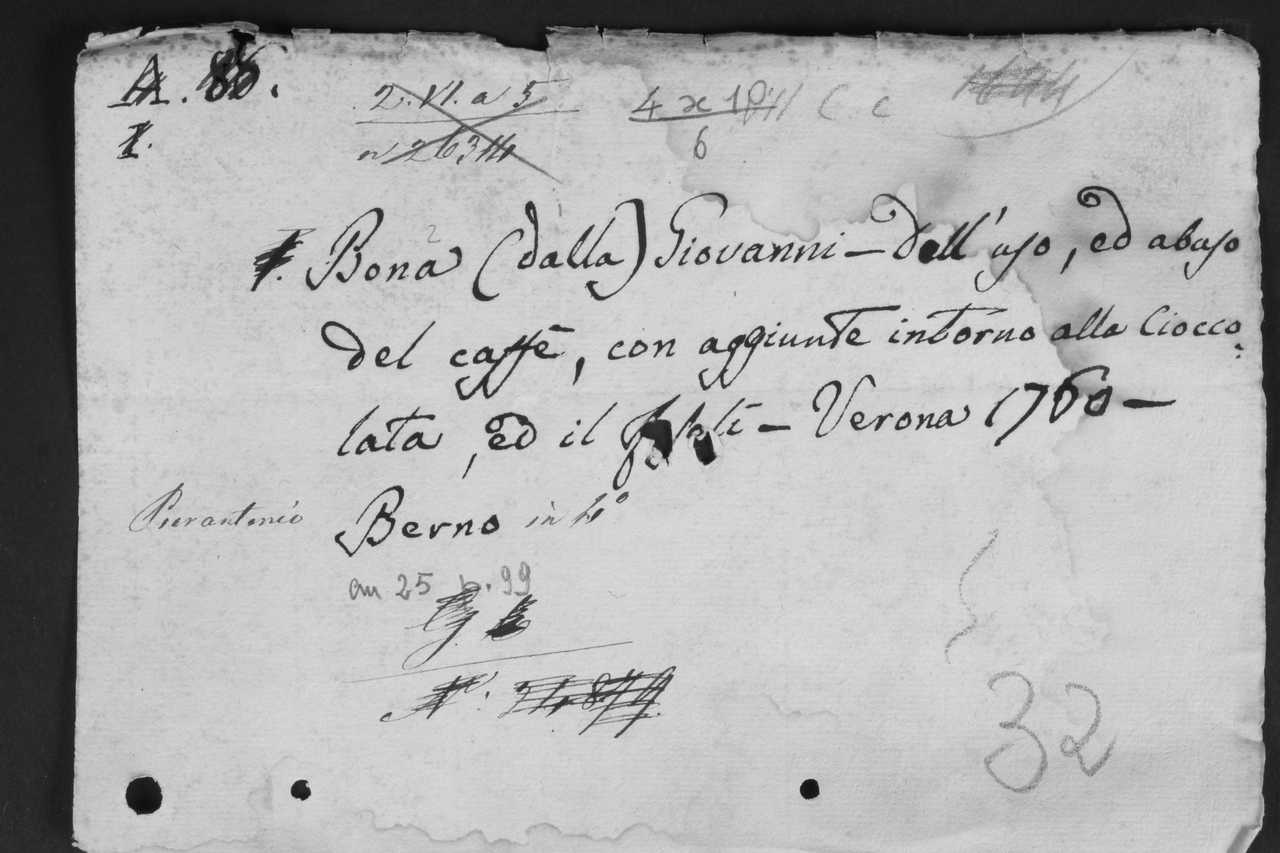 A. 86.
I.
2. VI. a 5
4 x 18
C. c
6
Bona (dalla) Giovanni – Dell'uso, ed abuso
del caffè, con aggiunte intorno alla Ciocco-
lata, ed il – Verona 1760 –
Pierantonio Berno in 4°
an 25 p. 99
32